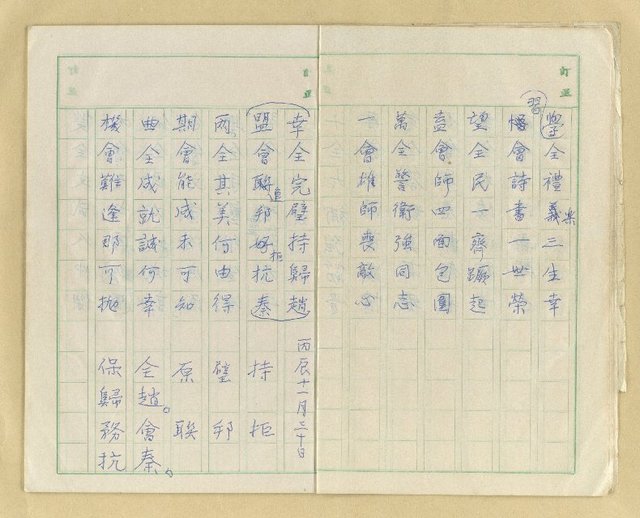 訂正
全禮義三生幸
樂
習
會詩書一世榮
望全民一齊躍起
盍會師四面包圍
萬全警衛強同志
一會雄師喪敵心
訂正
幸全完璧持歸趙
盟會聯邦好抗秦
追
拒
兩全其美何由得
期會能成未可知
曲全成就誠何幸
機會難逢那可拋
丙辰十一月十日
持拒
璧邦
原聯
全趙。會秦。
保歸務抗